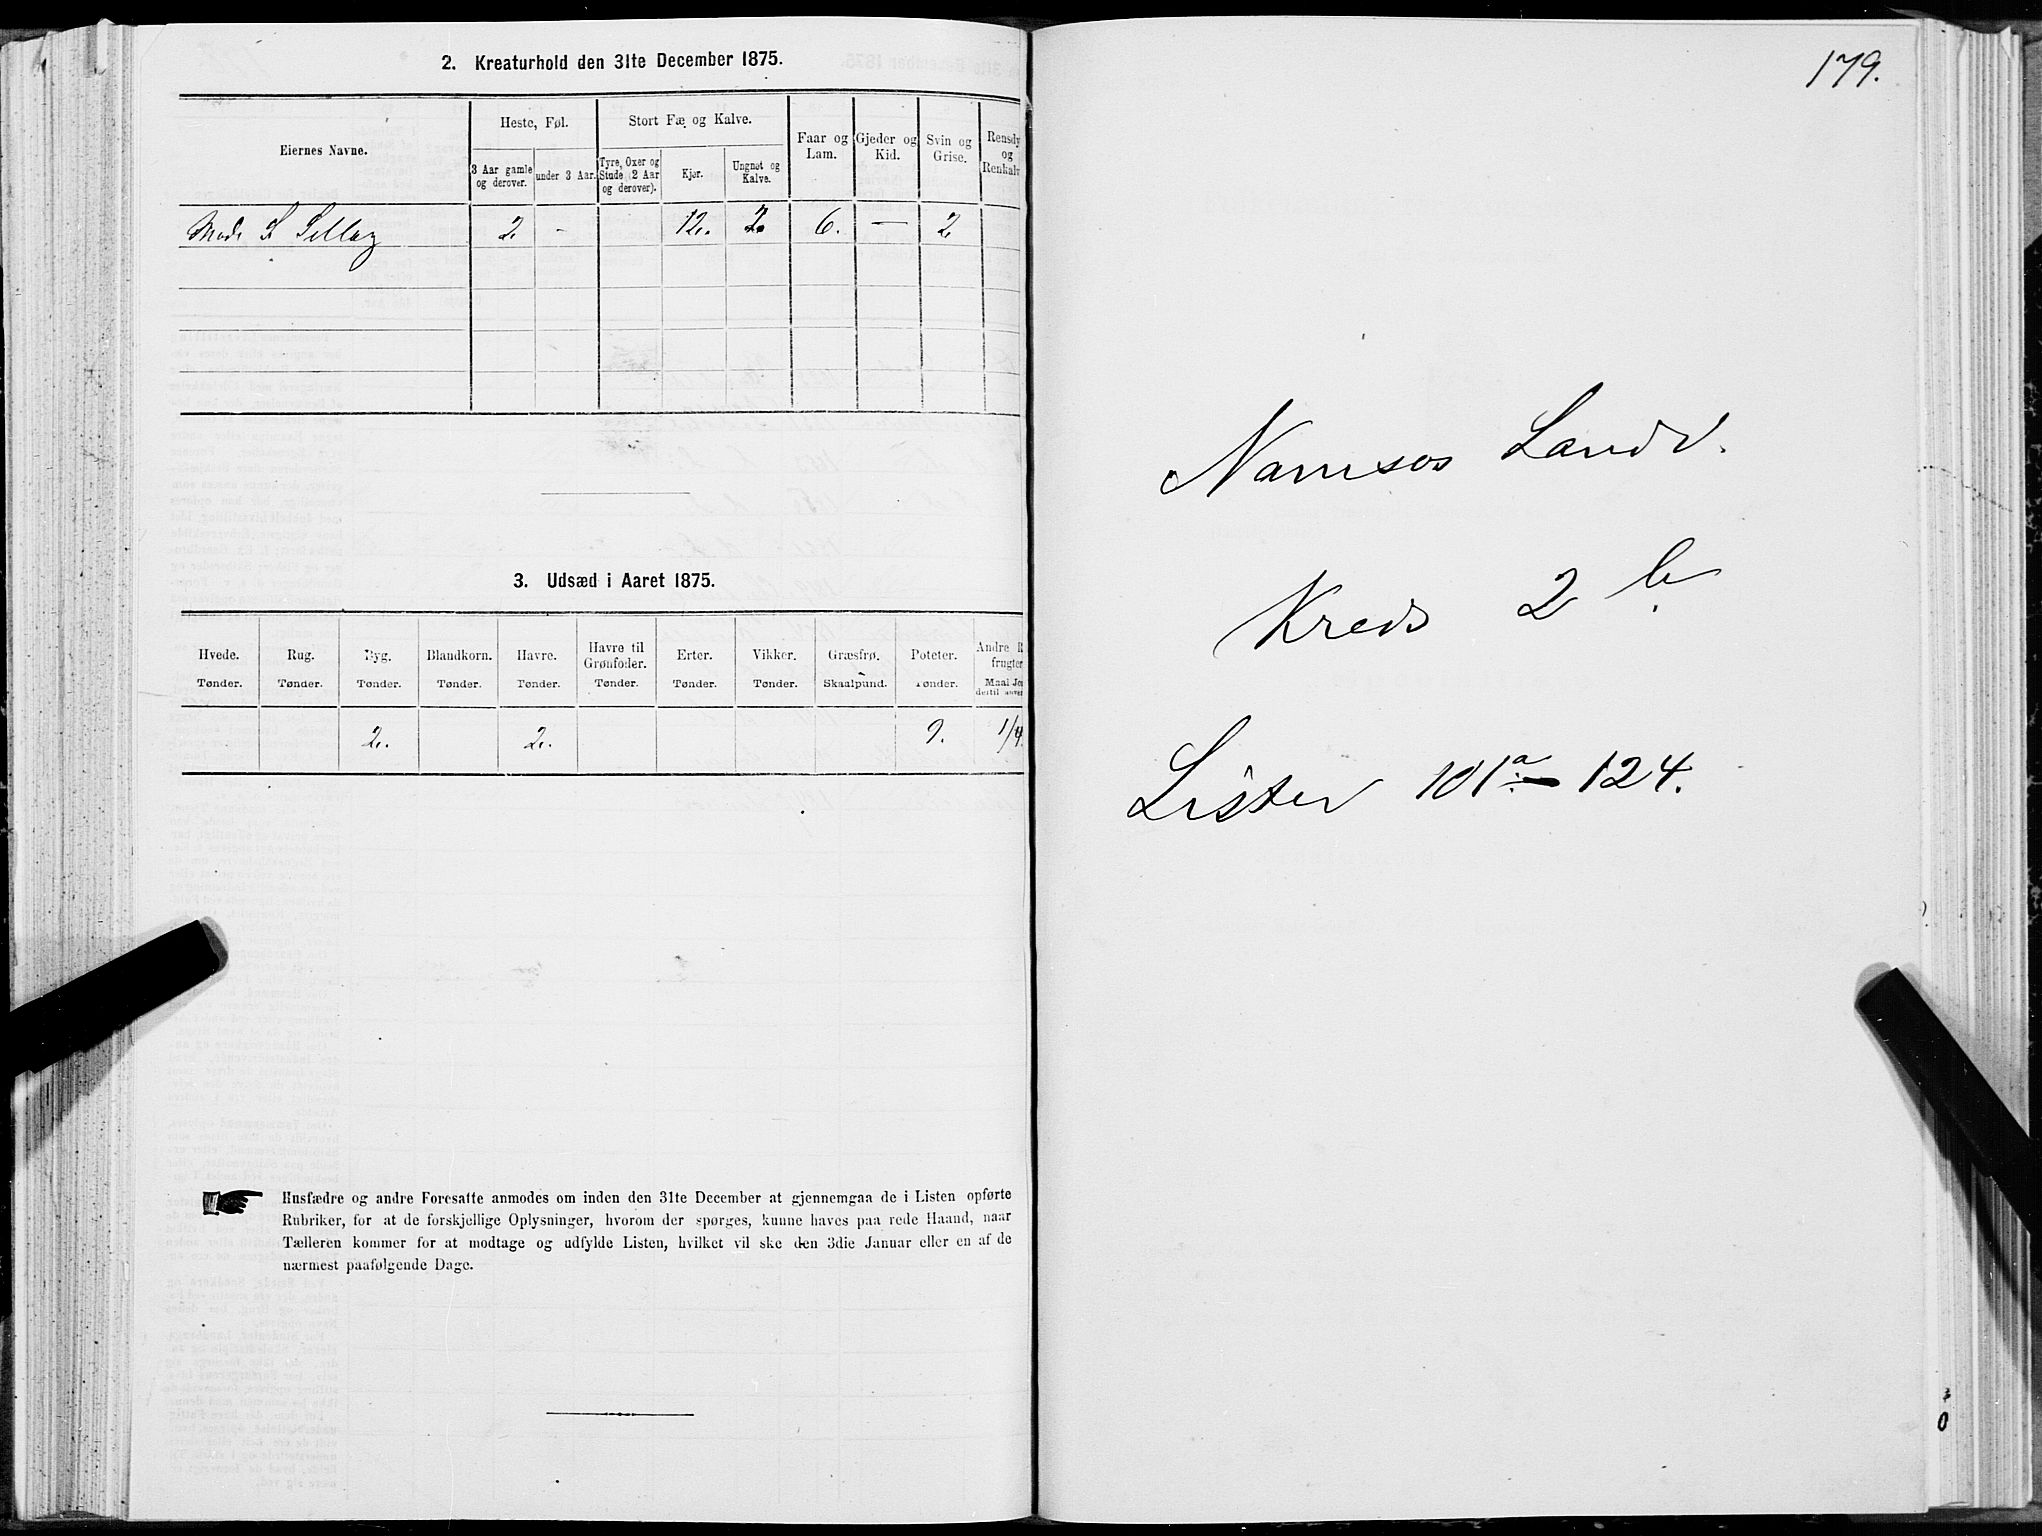 2. Kreaturhold den 31te December 1875.
Eiernes Navne.
Heste, Føl.
3 Aar gamle og derover.
under 3 Aar.
Stort Fæ og Kalve.
Tyre, Oxer og Stude (2 Aar og derover).
Kjør.
Ungnøt og Kalve.
Faar og Lam.
Gjeder og Kid.
Svin og Grise.
Rensdy
og
Renkalv
Mads S Sellæg 2 - 12. 2 6. — 2
3. Udsæd i Aaret 1875.
Hvede. Rug. Byg. Blandkorn. Havre. Havre til Grønfoder. Erter. Vikker. Græsfrø. Poteter. Andre R
frugter
Tønder. Tønder. Tønder. Tønder. Tønder. Tønder. Tønder. Tønder. Skaalpund. Tønder. Maal Jo
dertil anven
2. 2. 9. 1/4.
Husfædre og andre Foresatte anmodes om inden den 31te December at gjennemgaa de i Listen opførte
Rubriker, for at de forskjellige Oplysninger, hvorom der spørges, kunne haves paa rede Haand, naar
Tælleren kommer for at modtage og udfylde Listen, hvilket vil ske den 3die Januar eller en af de
nærmest paafølgende Dage.
179.
Namsos Lands.
Kreds 2 b
Lister 101a — 124.